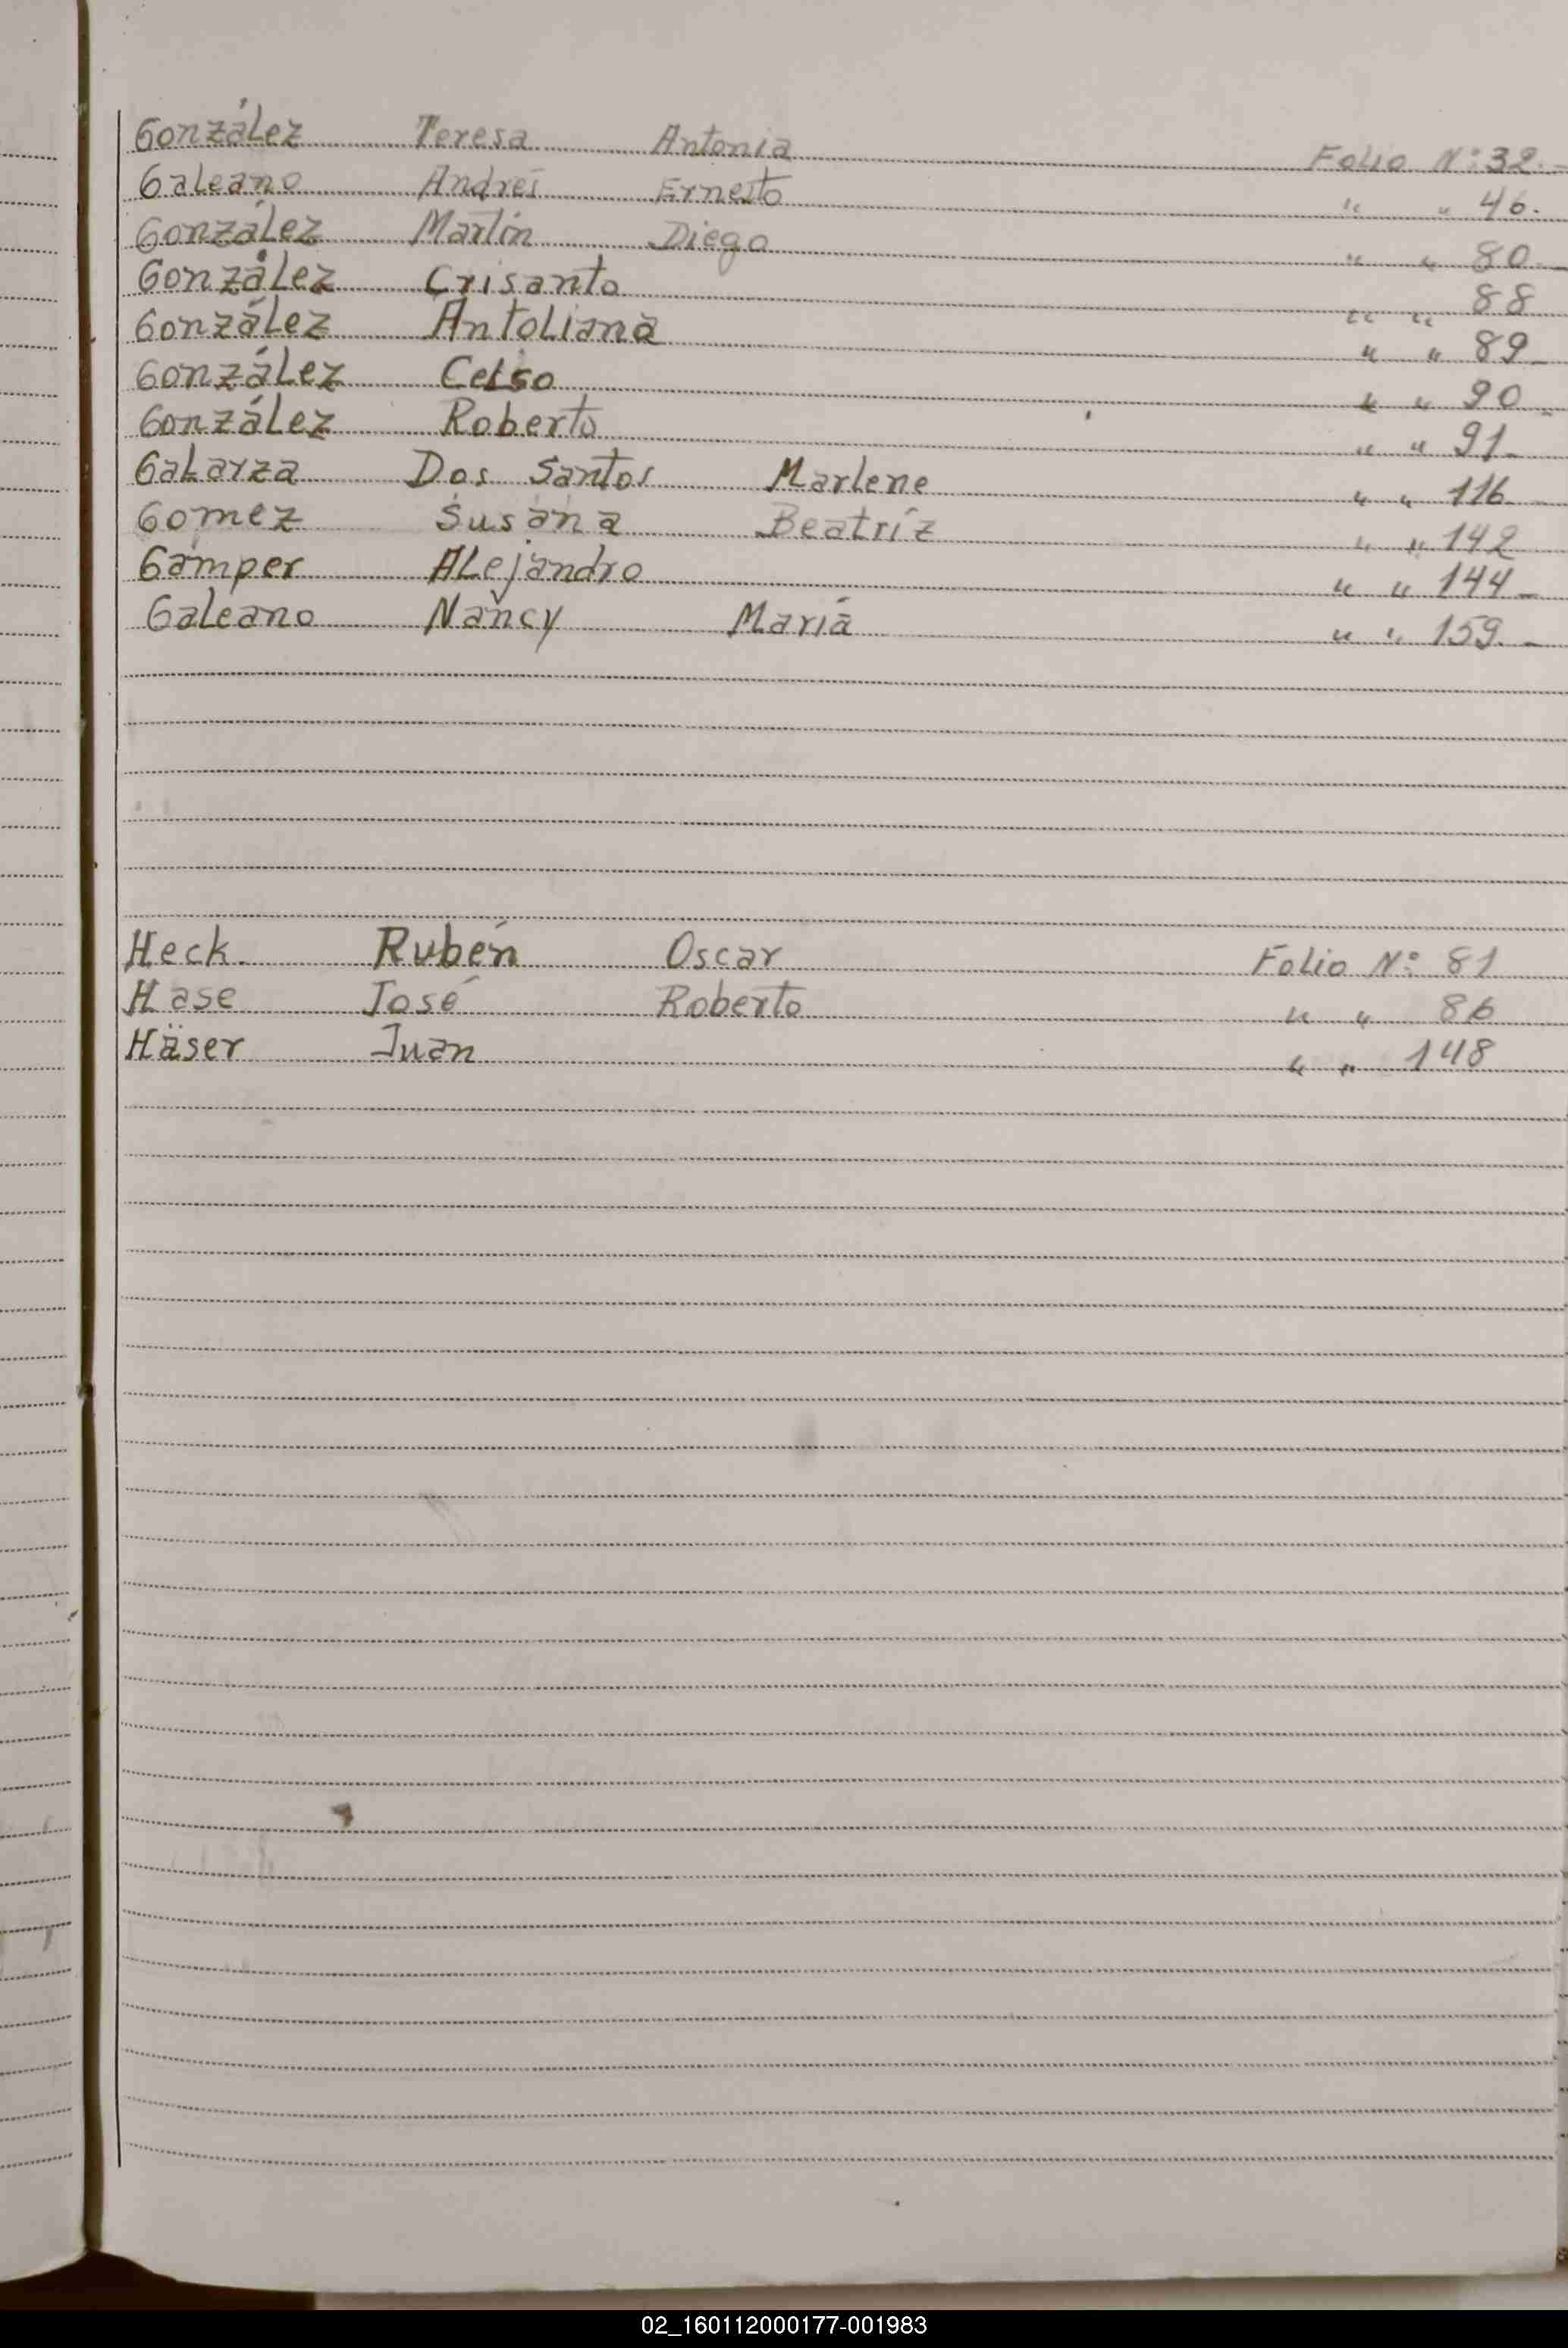 González Teresa Antonia Folio Nº: 32.-
Galeano Andrés Ernesto " " 46.
González Martín Diego " " 80.-
González Crisanto " " 88
González Antoliana " " 89-
González Celso " " 90-
González Roberto " " 91-
Galarza Dos Santos Marlene " " 116-
Gomez Susana Beatríz " " 142
Gamper Alejandro " " 144-
Galeano Nancy María " " 159.-
Heck. Rubén Oscar Folio Nº: 81
Hase José Roberto " " 86
Häser Juan " " 148
02_160112000177-001983